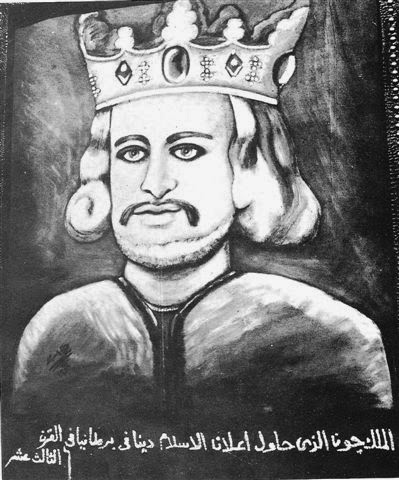 الملك چون الذى حاول اعلان الاسلام دينا فى بريطانيا فى القرن
الثالث عشر